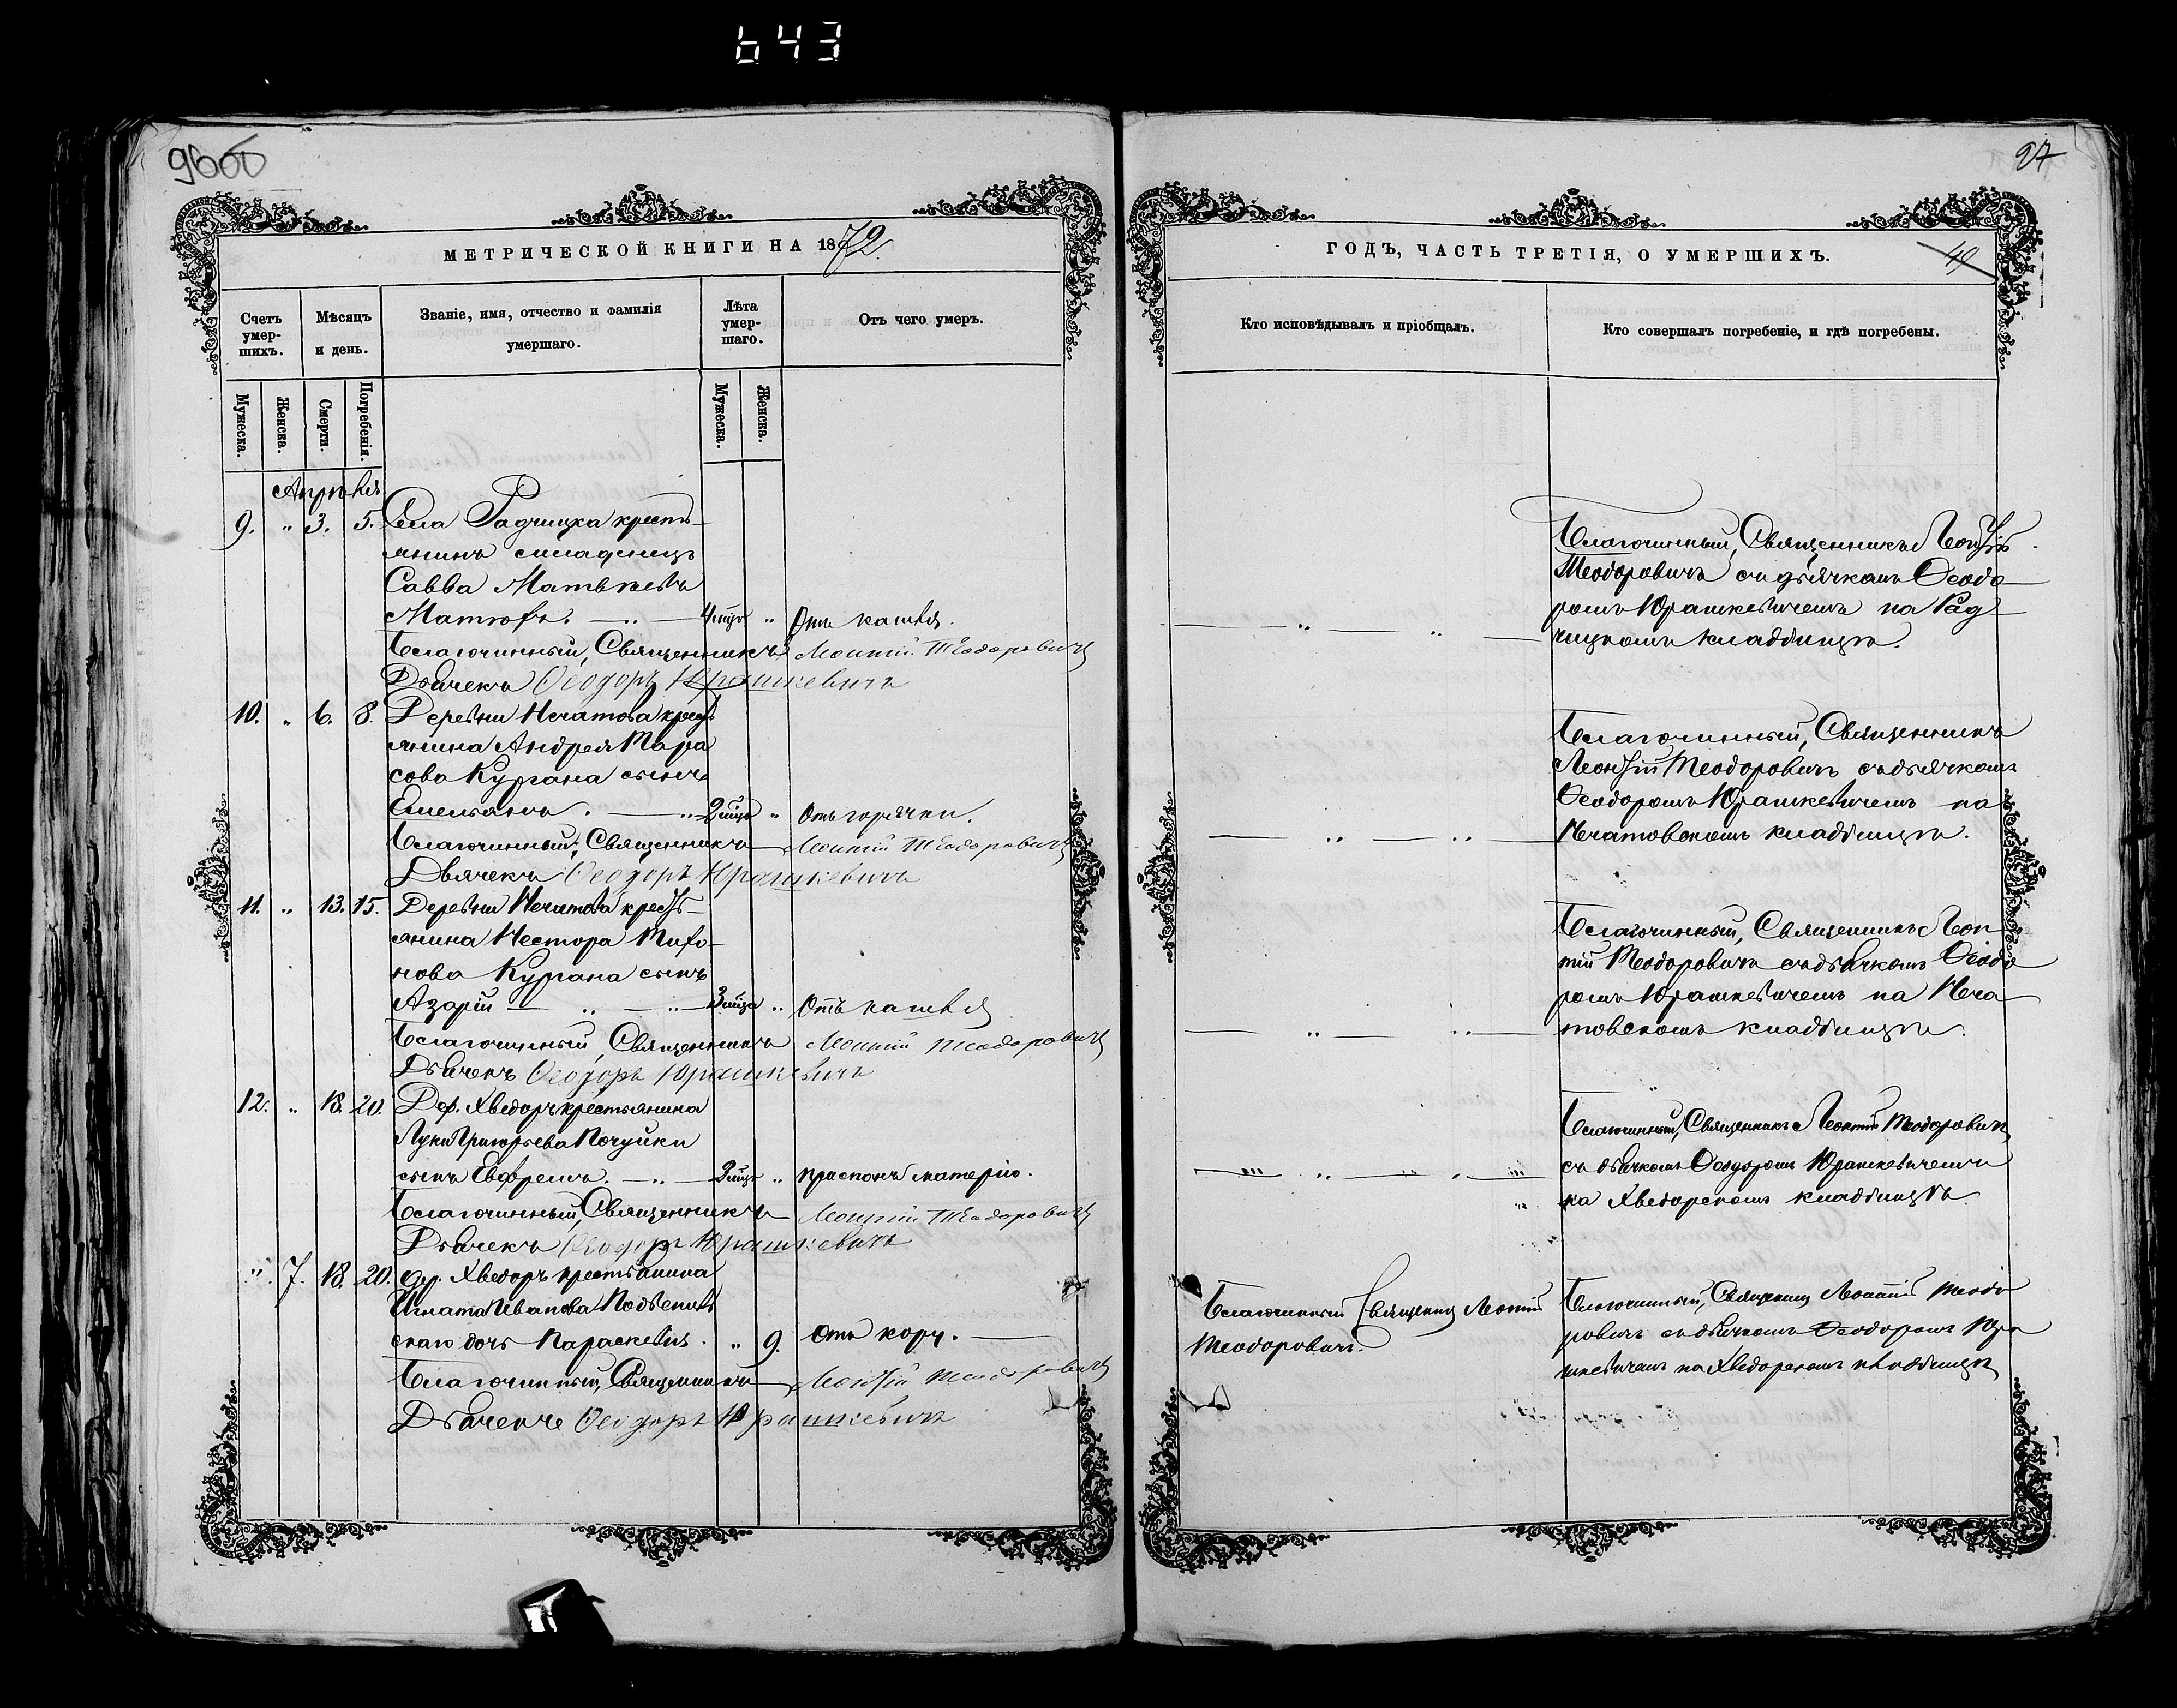 643
96об
97
МЕТРИЧЕСКОЙ КНИГИ НА 1872.
Счетъ умер-шихъ.
Мѣсяцъ и день.
Званіе, имя, отчество и фамилія умершаго.
Лѣта умер-шаго.
Отъ чего умеръ.
Мужеска.
Женска.
Смерти.
Погребенія.
Мужеска.
Женска.
Апрѣля
9. " 3. 5. Села Радчицка кресть-
янинъ младенецъ
Савва Матвѣевъ
4 мцъ " Отъ кашля.
Благочинный, Священникъ Леонтій Теодоровичъ
Дьячекъ Ѳеодоръ Юрашкевичъ
10. " 6. 8. Деревни Нечатова крест
янина Андрея Тара
сова Кургана сынъ
Емельянъ. 2 мцъ " Отъ горячки.
Благочинный, Священникъ Леонтій Теодоровичъ
Дьячекъ Ѳеодоръ Юрашкевичъ
11. " 13. 15. Деревни Нечатова кресть-
янина Нестора
нова Кургана сынъ
Азарій 3 мца " Отъ кашля
Благочинный, Священникъ Леонтій Теодоровичъ
Дьячекъ Ѳеодоръ Юрашкевичъ
12. " 18. 20. Дер. Хведоръ крестьянина
Луки Григорьева
сынъ Евфремъ. 3 мцъ "
Благочинный, Священникъ Леонтій Теодоровичъ
Дьячекъ Ѳеодоръ Юрашкевичъ
" 7. 18. 20. дер. Хведоръ крестьянина
Игната Иванова
скаго дочь Параскевія. " 9. Отъ кору.
Благочинный, Священникъ Леонтій Теодоровичъ
Дьячекъ Ѳеодоръ Юрашкевичъ
ГОДЪ, ЧАСТЬ ТРЕТІЯ, О УМЕРШИХЪ.
49
Кто исповѣдывалъ и пріобщалъ.
Кто совершалъ погребеніе, и гдѣ погребены.
Благочинный, Священникъ Леонтій
Теодоровичъ съ дьячкомъ Ѳеодо
ромъ Юрашкевичемъ на Рад
чицкомъ кладбищѣ.
Благочинный, Священникъ
Леонтій Теодоровичъ съ дьячкомъ
Ѳеодоромъ Юрашкевичемъ на
Нечатовскомъ кладбищѣ.
Благочинный, Священникъ Леон
тій Теодоровичъ съ дьячкомъ Ѳеодо
ромъ Юрашкевичемъ на Неча
товскомъ кладбищѣ.
Благочинный, Священникъ Леонтій Теодоровичъ
съ дьячкомъ Ѳеодоромъ Юрашкевичемъ
на Хведорскомъ кладбищѣ.
Благочинный Священникъ Леонтій
Теодоровичъ.
Благочинный, Священникъ Леонтій Теодо
ровичъ съ дьячкомъ Ѳеодоромъ Юра
шкевичемъ на Хведорскомъ кладбищѣ